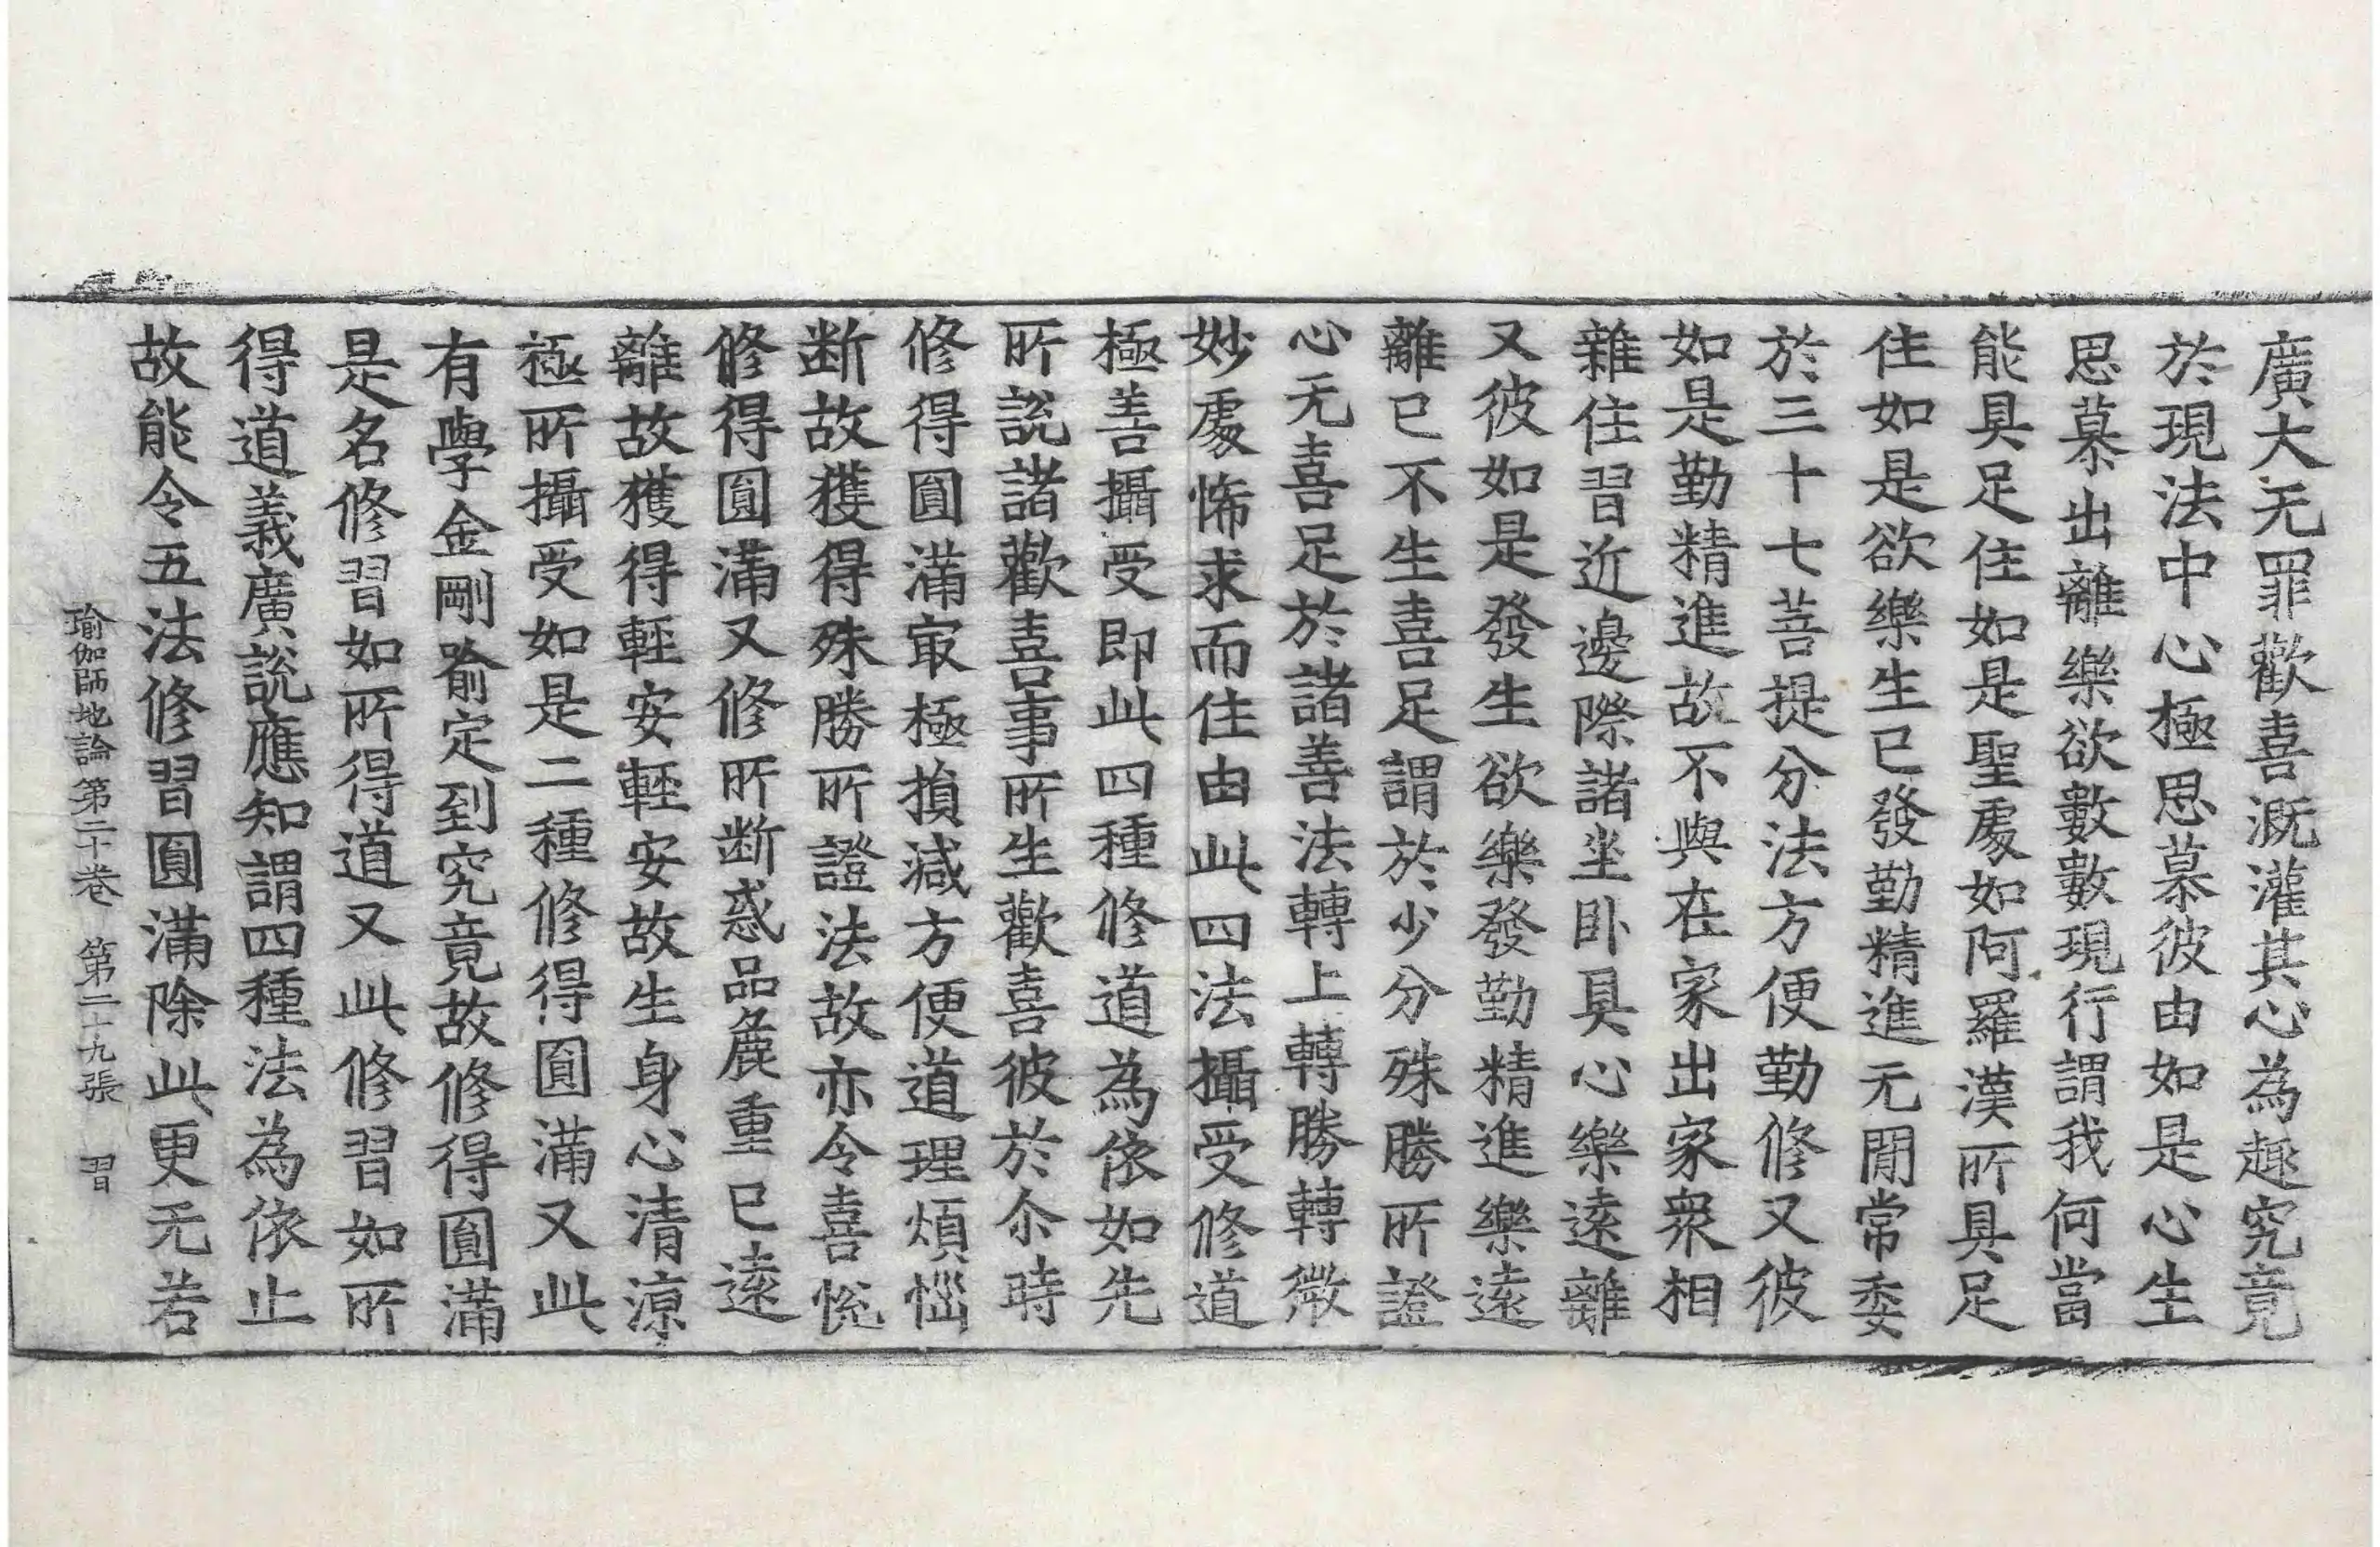 廣大无罪歡喜溉灌其心為趣究竟
於現法中心極思慕彼由如是心生
思慕出離樂欲數數現行謂我何當
能具足住如是聖處如阿羅漢所具足
住如是欲樂生已發勤精進无閒常委
於三十七菩提分法方便勤修又彼
如是勤精進故不與在家出家衆相
雜住習近邊際諸坐卧具心樂遠離
又彼如是發生欲樂發勤精進樂遠
離已不生喜足謂於少分殊勝所證
心无喜足於諸善法轉上轉勝轉微
妙處悕求而住由此四法攝受修道
極善攝受即此四種修道為依如先
所說諸歡喜事所生歡喜彼於尒時
修得圓滿㝡極損減方便道理煩惱
断故獲得殊勝所證法故亦令喜悅
修得圓滿又修所断惑品麁重已遠
離故獲得輕安輕安故生身心清涼
極所攝受如是二種修得圓滿又此
有學金剛喻定到究竟故修得圓滿
是名修習如所得道又此修習如所
得道義廣說應知謂四種法為依止
故能令五法修習圓滿除此更无若
瑜伽師地論第二十卷　第二十九張　習